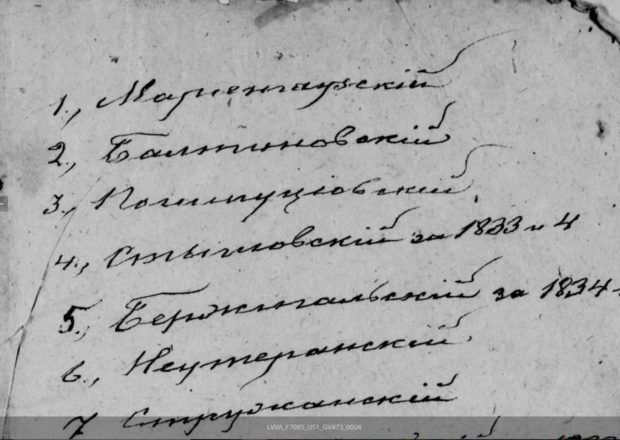 1., Мариенгаузскій
2., Балтиновскій
3., Корсовскій
4., за 1833 и 4
5., Бержигальскій за 1834
6., Неутеранскій
7 Стружанскій
LVVA_F7085_US1_GV473_0004